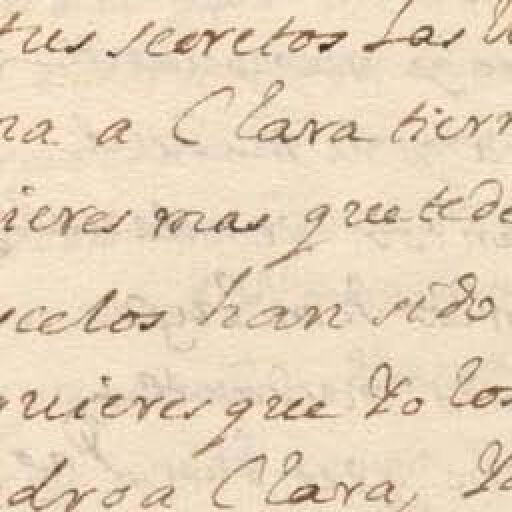 tus secretos Las
na a Clara tier
ieres mas que te de
celos han sido
quieres que Yo los
dro a Clara, Yo